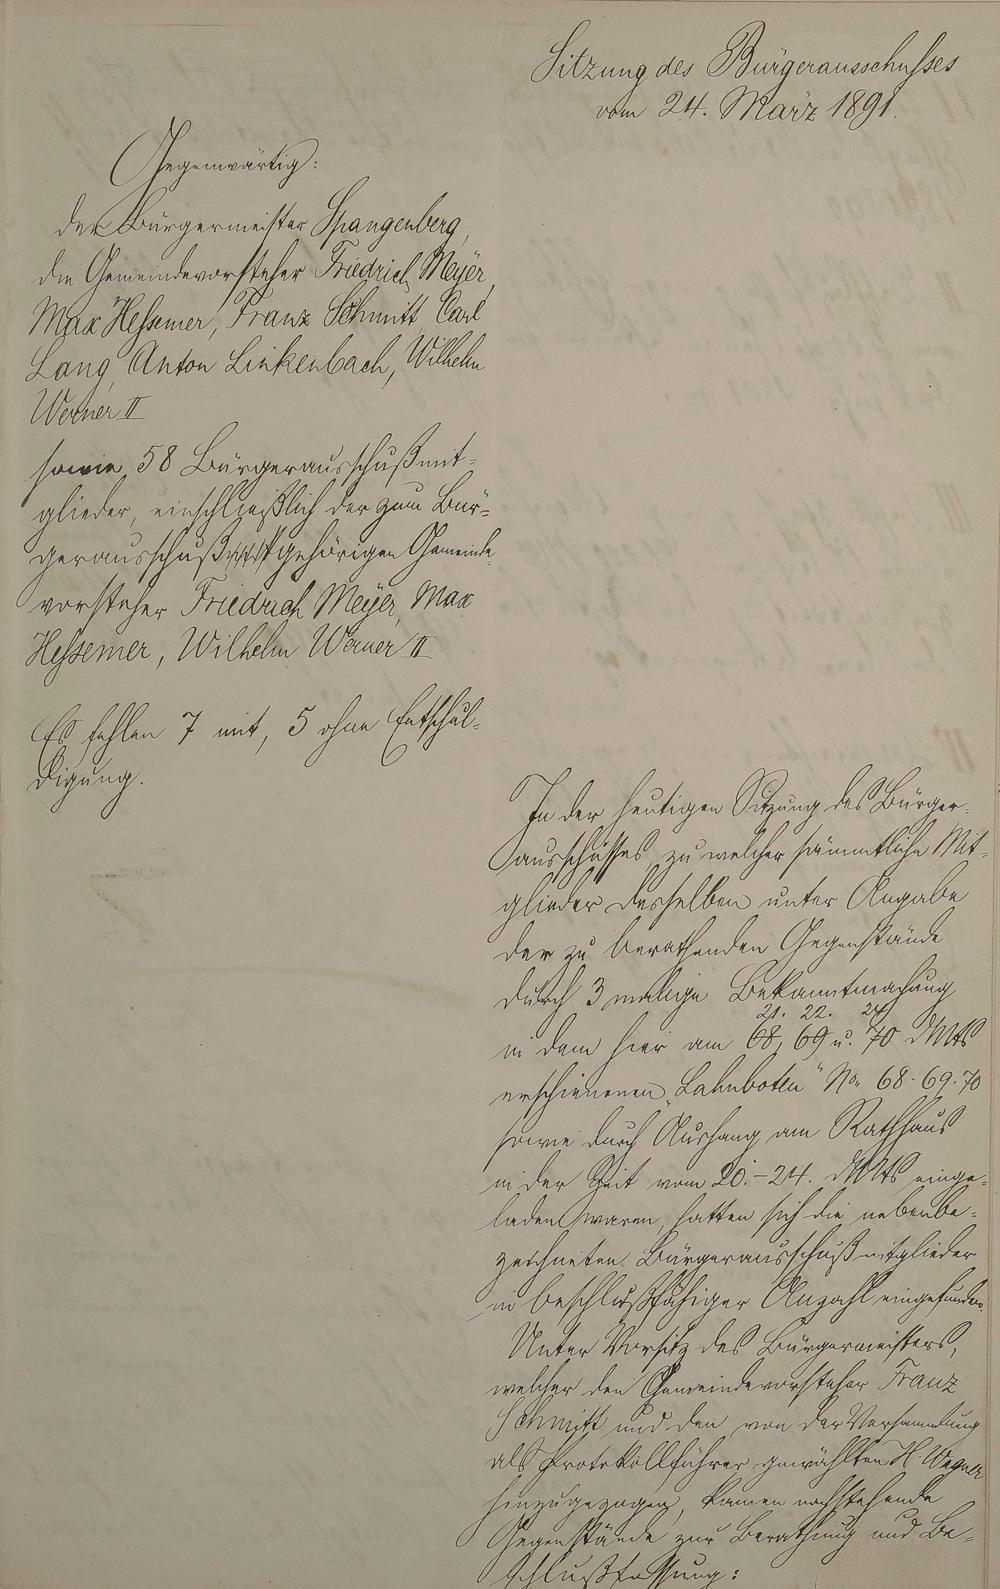 Sitzung des Bürgerausschusses
vom 24. März 1891.
Gegenwärtig:
der Bürgermeister Spangenberg,
die Gemeindevorsteher Friedrich Meyer,
Max Hessemer, Franz Schmitt, Carl
Lang, Anton Linkenbach, Wilhelm
Werner II
sowie 58 Bürgerausschußmit-
glieder, einschließlich der zum Bür-
gerausschuß gehörigen Gemeinde-
vorsteher Friedrich Meyer, Max
Hessemer, Wilhelm Werner II
Es fehlen 7 mit, 5 ohne Entschul-
digung.
In der heutigen Sitzung des Bürger-
ausschusses, zu welcher sämmtliche Mit-
glieder desselben unter Angabe
der zu berathenden Gegenstände
durch 3 malige Bekanntmachung
21. 22. 24
in dem hier am 68, 69 u. 70 d Mts
erschienenen "Lahnboten" No. 68. 69. 70
sowie durch Aushang am Rathhaus
in der Zeit vom 20.-24. d Mts einge-
laden waren, hatten sich die nebenbe-
zeichneten Bürgerausschußmitglieder
in beschlußfähiger Anzahl eingefunden.
Unter Vorsitz des Bürgermeisters,
welcher den Gemeindevorsteher Franz
Schmitt und den von der Versammlung
als Protokollführer gewählten H. Wagner
hinzugezogen, kamen nachstehende
Gegenstände zur Berathung und Be-
schlußfassung: